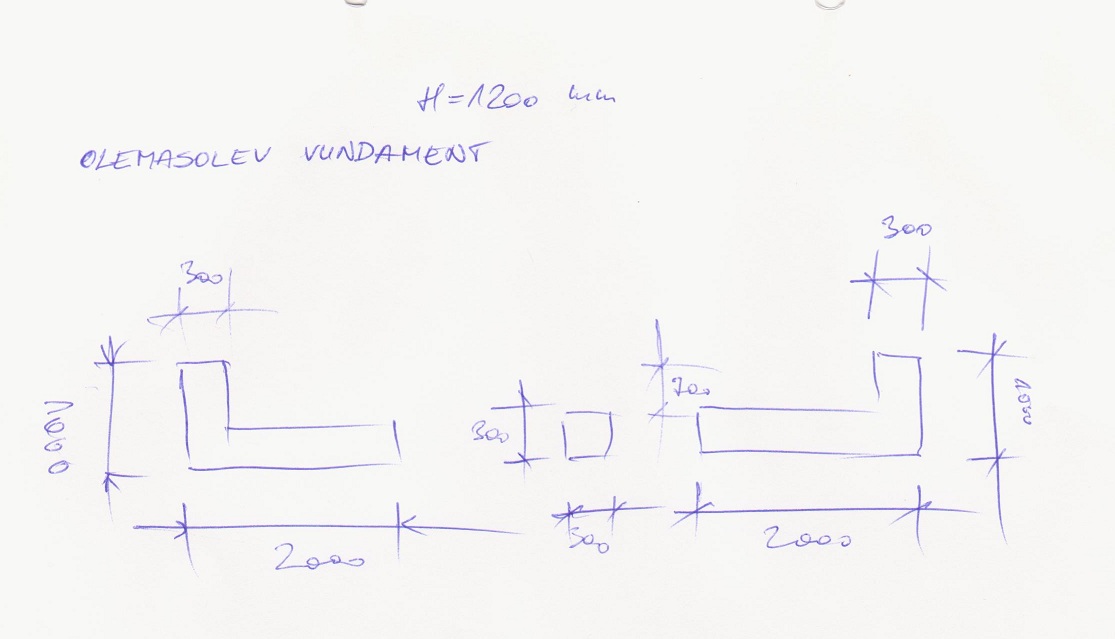 H=1200 mm
OLEMASOLEV VUNDAMENT
300
300
1000
700
1000
300
300
2000
2000